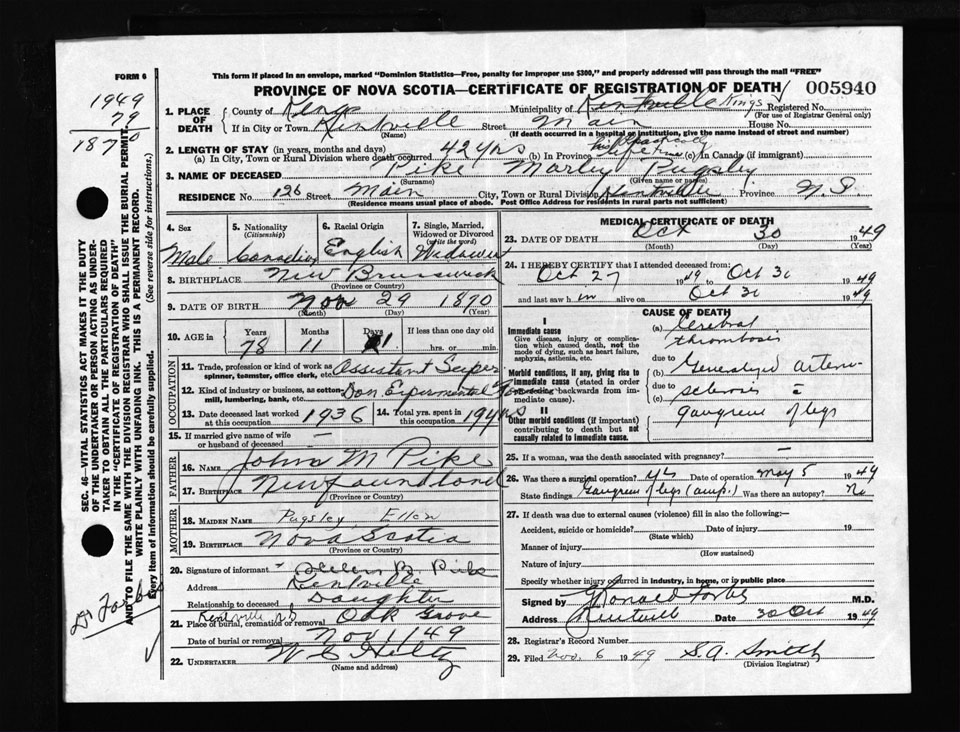 FORM 6
This form if placed in an envelope, marked "Dominion Statistics—Free, penalty for improper use $300," and properly addressed will pass through the mail "FREE"
PROVINCE OF NOVA SCOTIA—CERTIFICATE OF REGISTRATION OF DEATH 005940
1949
79
1870
1. PLACE OF DEATH County of Kings Municipality of Kentville Kings Registered No.
(For use of Registrar General only)
If in City or Town Kentville Street Main House No.
(Name) (If death occurred in a hospital or institution, give the name instead of street and number)
2. LENGTH OF STAY (in years, months and days)
(a) In City, Town or Rural Division where death occurred 42 yrs (b) In Province lifetime (c) In Canada (if immigrant)
3. NAME OF DECEASED Pike Marley Pugsley
(Surname) (Given name or names)
RESIDENCE No. 126 Street Main City, Town or Rural Division Kentville Province N.S.
(Residence means usual place of abode. Post Office Address for residents in rural parts not sufficient)
4. Sex 5. Nationality (Citizenship) 6. Racial Origin 7. Single, Married, Widowed or Divorced (write the word)
Male Canadian English Widower
8. BIRTHPLACE New Brunswick
(Province or Country)
9. DATE OF BIRTH Nov 29 1870
(Month) (Day) (Year)
10. AGE in Years Months Days If less than one day old
78 11 1 hrs. or min.
OCCUPATION
11. Trade, profession or kind of work as spinner, teamster, office clerk, etc. Assistant Super
12. Kind of industry or business, as cotton-mill, lumbering, bank, etc. Dom Experimental
13. Date deceased last worked at this occupation 1936 14. Total yrs. spent in this occupation 19 yrs
15. If married give name of wife or husband of deceased —
FATHER
16. NAME John M Pike
17. BIRTHPLACE Newfoundland
(Province or Country)
MOTHER
18. MAIDEN NAME Pugsley, Ellen
19. BIRTHPLACE Nova Scotia
(Province or Country)
20. Signature of informant Pike
Address Kentville
Relationship to deceased Daughter
Kentville N.S.
21. Place of burial, cremation or removal Oak Grove
Date of burial or removal Nov 1/49
22. UNDERTAKER W S Hiltz
(Name and address)
MEDICAL CERTIFICATE OF DEATH
23. DATE OF DEATH Oct 30 1949
(Month) (Day) (Year)
24. I HEREBY CERTIFY that I attended deceased from:
Oct 27 1949 to Oct 30 1949
and last saw him alive on Oct 30 1949
CAUSE OF DEATH
I
Immediate cause
Give disease, injury or complication which caused death, not the mode of dying, such as heart failure, asphyxia, asthenia, etc.
(a) Cerebral thrombosis
due to
Morbid conditions, if any, giving rise to immediate cause (stated in order proceeding backwards from immediate cause).
(b) Generalized arterio
due to
(c) sclerosis c̄
II
Other morbid conditions (if important) contributing to death but not causally related to immediate cause.
gangrene of legs
25. If a woman, was the death associated with pregnancy? —
26. Was there a surgical operation? yes Date of operation May 5 1949
State findings Gangrene of legs (amp.) Was there an autopsy? No
27. If death was due to external causes (violence) fill in also the following:—
Accident, suicide or homicide? Date of injury 19
(State which)
Manner of injury
(How sustained)
Nature of injury
Specify whether injury occurred in industry, in home, or in public place
Signed by Donald Forbes M.D.
Address Kentville Date 30 Oct 1949
28. Registrar's Record Number
29. Filed Nov. 6 1949 S.A. Smith
(Division Registrar)
SEC. 46—VITAL STATISTICS ACT MAKES IT THE DUTY OF THE UNDERTAKER OR PERSON ACTING AS UNDERTAKER TO OBTAIN ALL THE PARTICULARS REQUIRED IN THE "CERTIFICATE OF REGISTRATION OF DEATH" AND TO FILE THE SAME WITH THE DIVISION REGISTRAR WHO SHALL ISSUE THE BURIAL PERMIT.
WRITE PLAINLY WITH UNFADING INK. THIS IS A PERMANENT RECORD.
Every item of information should be carefully supplied. (See reverse side for instructions.)
Dr Forbes